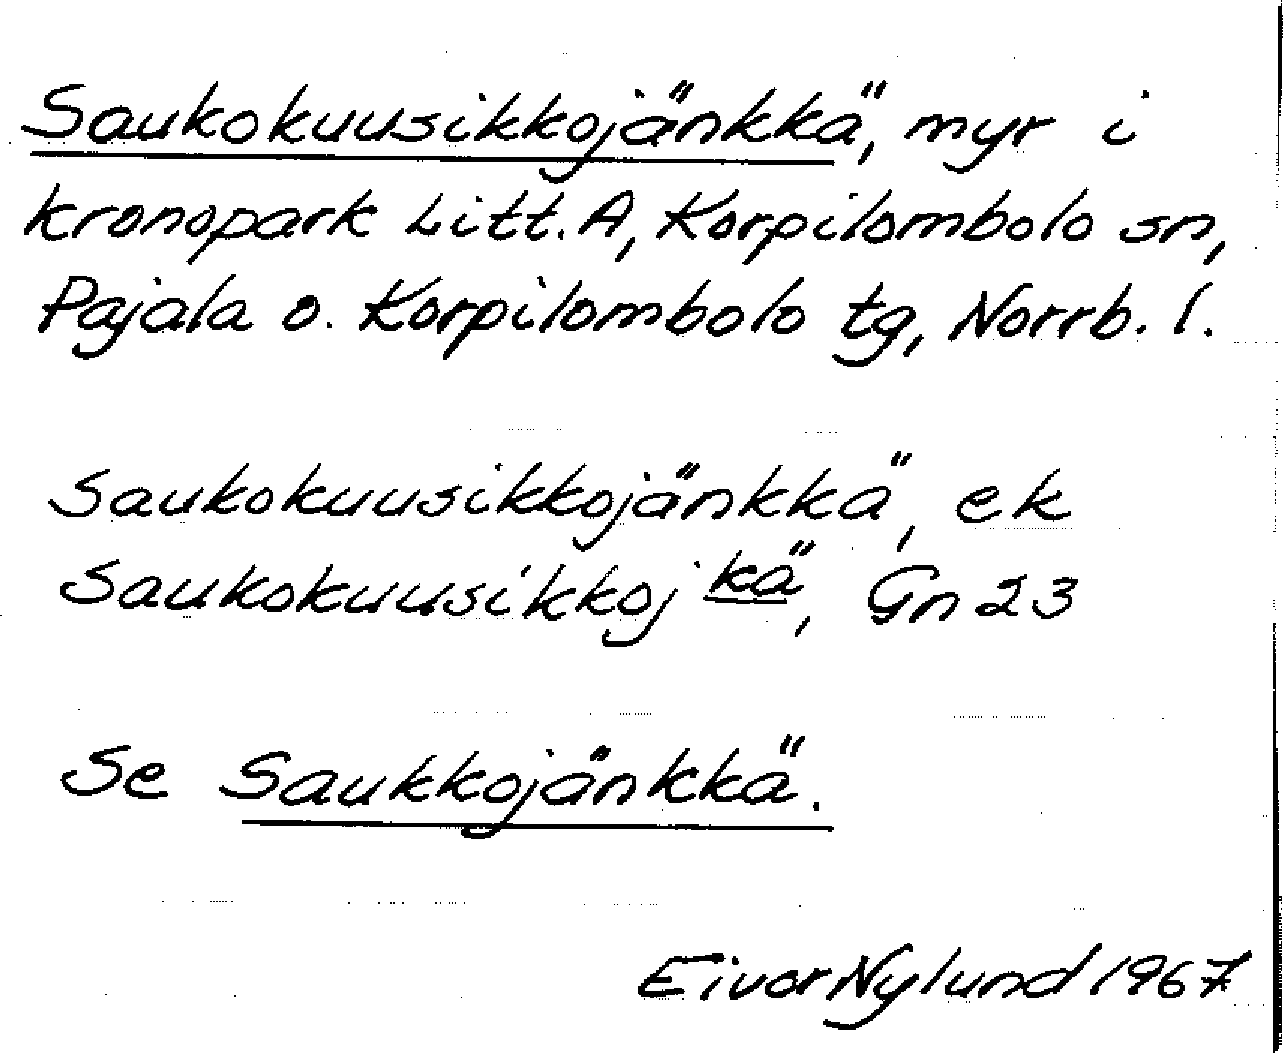 Saukokuusikkojänkkä, myr i
kronopark Litt. A, Korpilombolo sn,
Pajala o. Korpilombolo tg, Norrb. l.
Saukokuusikkojänkkä, ek
Saukokuusikkoj kä, Gn 23
Se Saukkojänkkä.
Eivor Nylund 1967